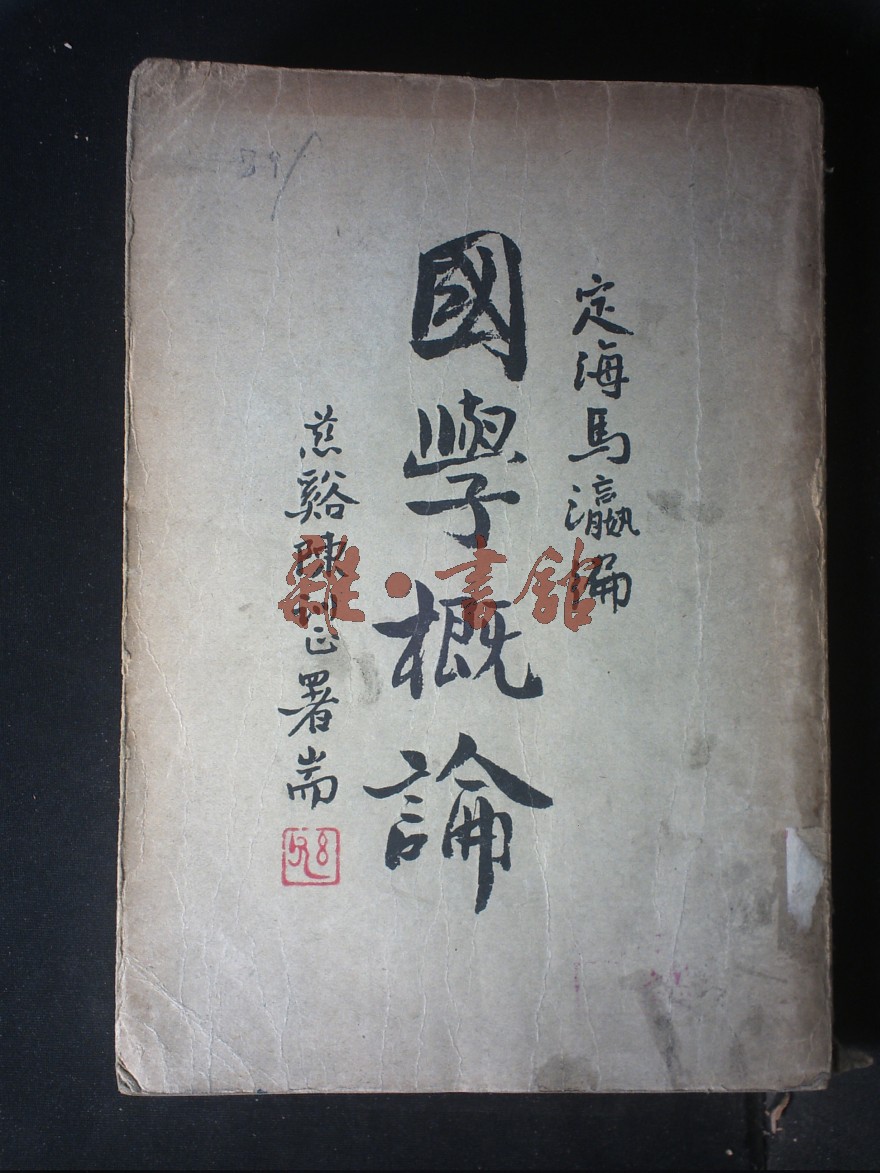 定海馬瀛編
國學概論
慈谿陳訓正署耑
雜·書館
391